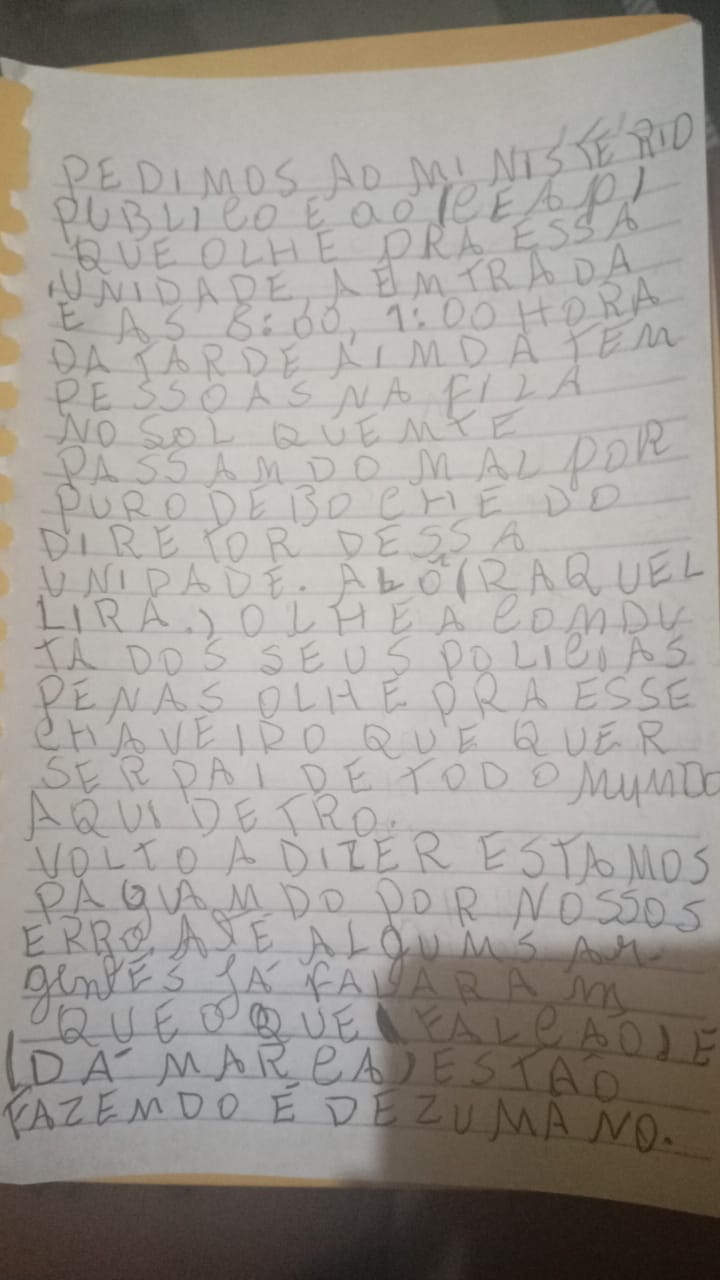 PEDIMOS AO MINISTÉRIO
PUBLICO E aO (CEAP)
QUE OLHE PRA ESSA
UNIDADE, A EMTRADA
E AS 8:00, 1:00 HORA
DA TARDE AIMDA TEM
PESSOAS NA FILA
NO SOL QUEMTE
PASSAMDO MAL POR
PURO DEBOCHE DO
DIRETOR DESSA
UNIDADE. ALÔ (RAQUEL
LIRA.) OLHE A COMDU
TA DOS SEUS POLICIAS
PENAS OLHE PRA ESSE
CHAVEIRO QUE QUER
SER PAI DE TODO MUMDO
AQUI DETRO.
VOLTO A DIZER ESTAMOS
PAGUAMDO POR NOSSOS
ERRO, ATÉ ALGUMS AR
gentES JÁ FALARAM
QUE O QUE (FALCÃO) E
(DA MARCA) ESTÃO
FAZEMDO É DEZUMANO.